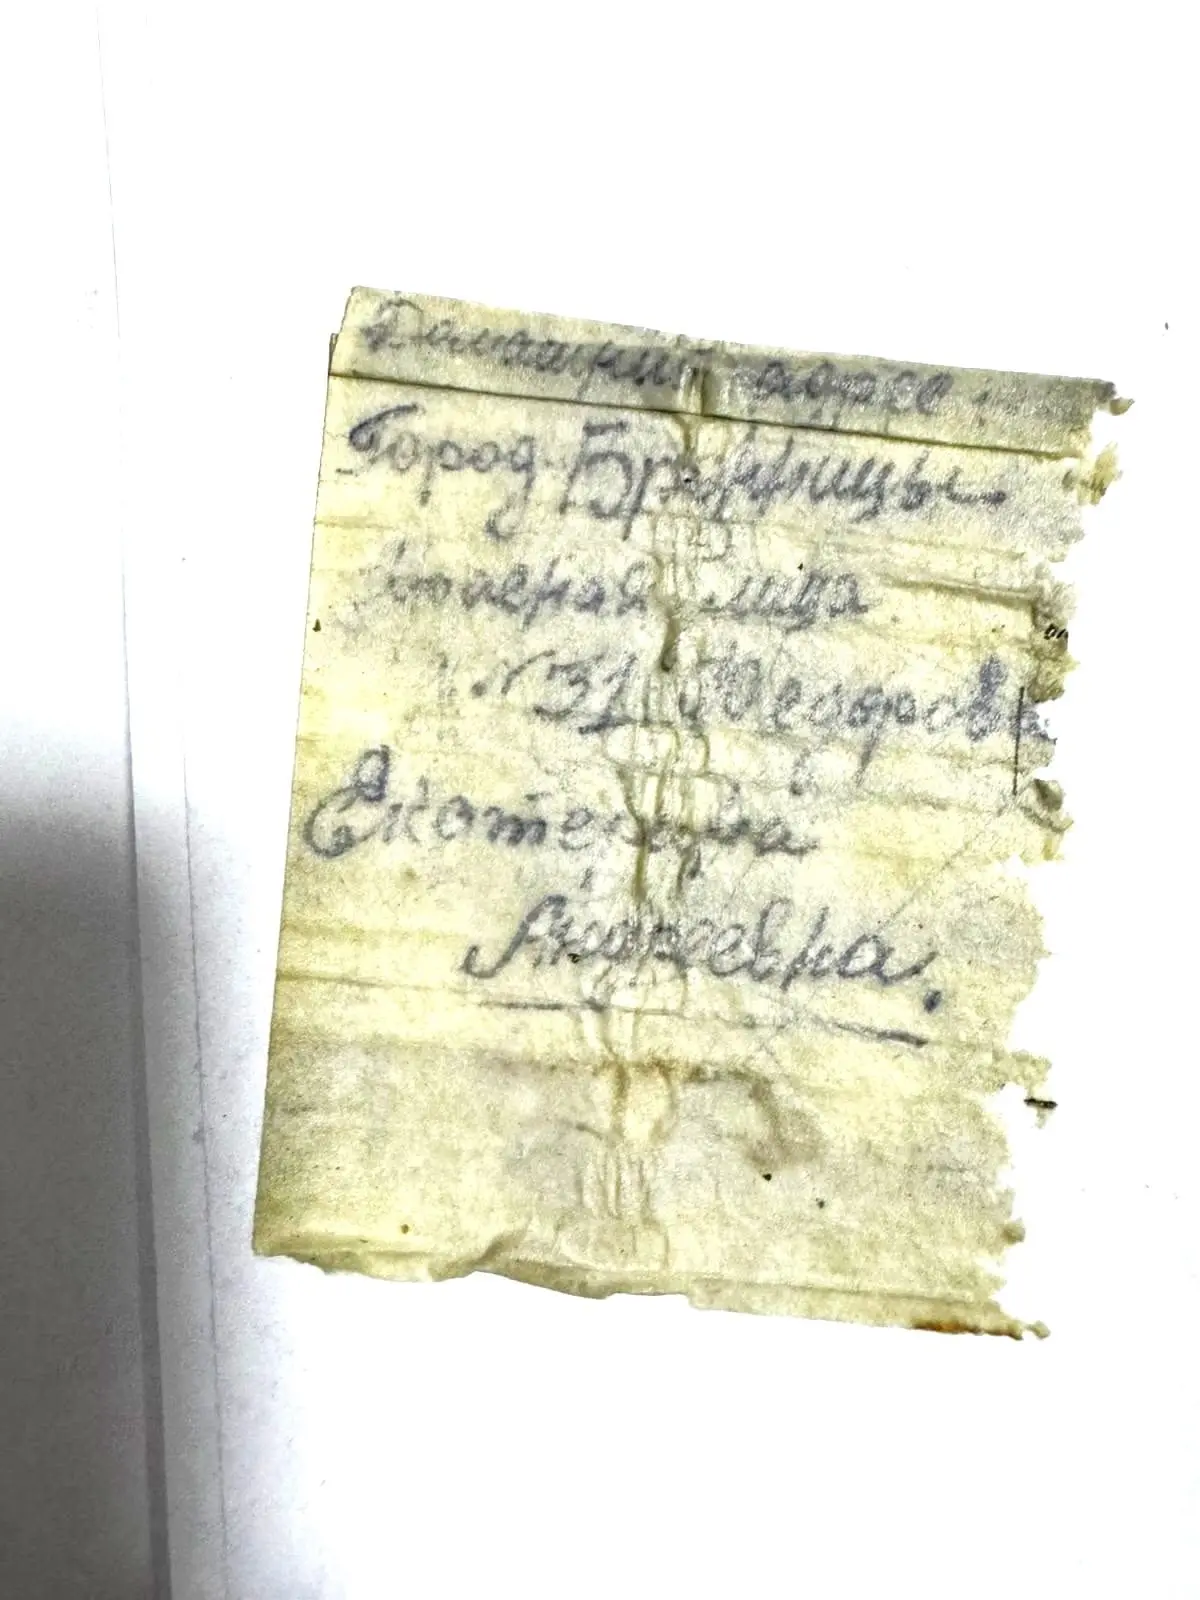 Домашний адрес.
Город Бронницы
улица
№ 31 Егорова
Екатерина
Андреевна.